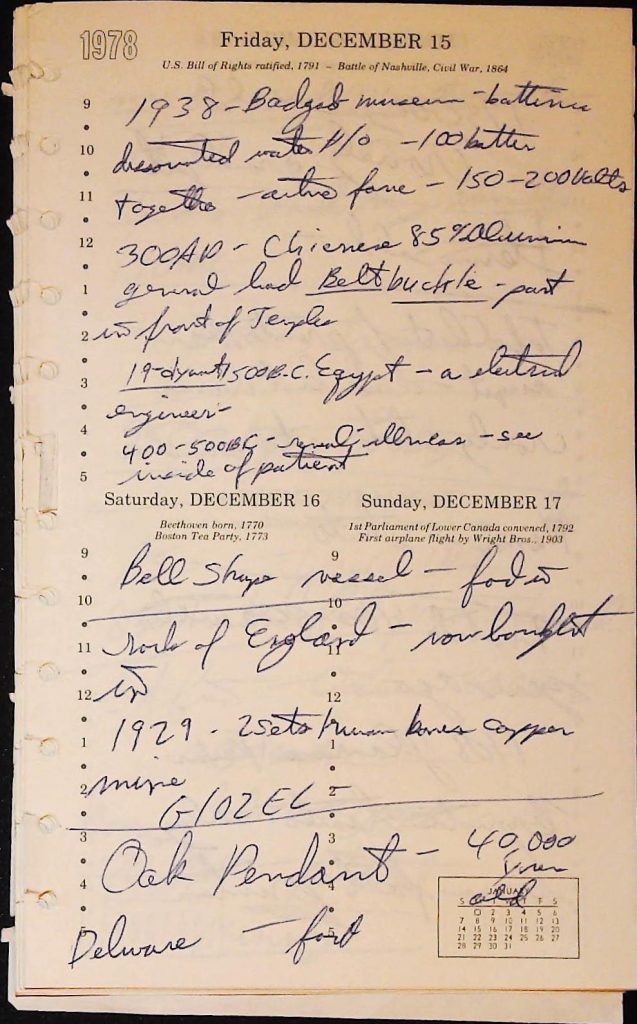 1978
Friday, DECEMBER 15
U.S. Bill of Rights ratified, 1791 – Battle of Nashville, Civil War, 1864
9 1938 - museum -
10 water H/O - 100
11 - 150-200 Volts
12 300AD - Chienese 85%
1 general had Belt buckle - part
2 in front of Temple
3 19-dyant 1500B.C. Egypt - a
4 engineer -
400-500BC - illness - see
5 inside of patient
Saturday, DECEMBER 16
Beethoven born, 1770
Boston Tea Party, 1773
Sunday, DECEMBER 17
1st Parliament of Lower Canada convened, 1792
First airplane flight by Wright Bros., 1903
9 9
Bell Shape vessel -
10 10
11 of England - 11
12 in 12
1 1929 - 2 sets human bones copper 1
2 mine 2
GlOZEL -
3 3
Oak Pendant - 40,000
4 old 4
5 Delware - 5
JANUARY
S M T W T F S
1 2 3 4 5 6
7 8 9 10 11 12 13
14 15 16 17 18 19 20
21 22 23 24 25 26 27
28 29 30 31